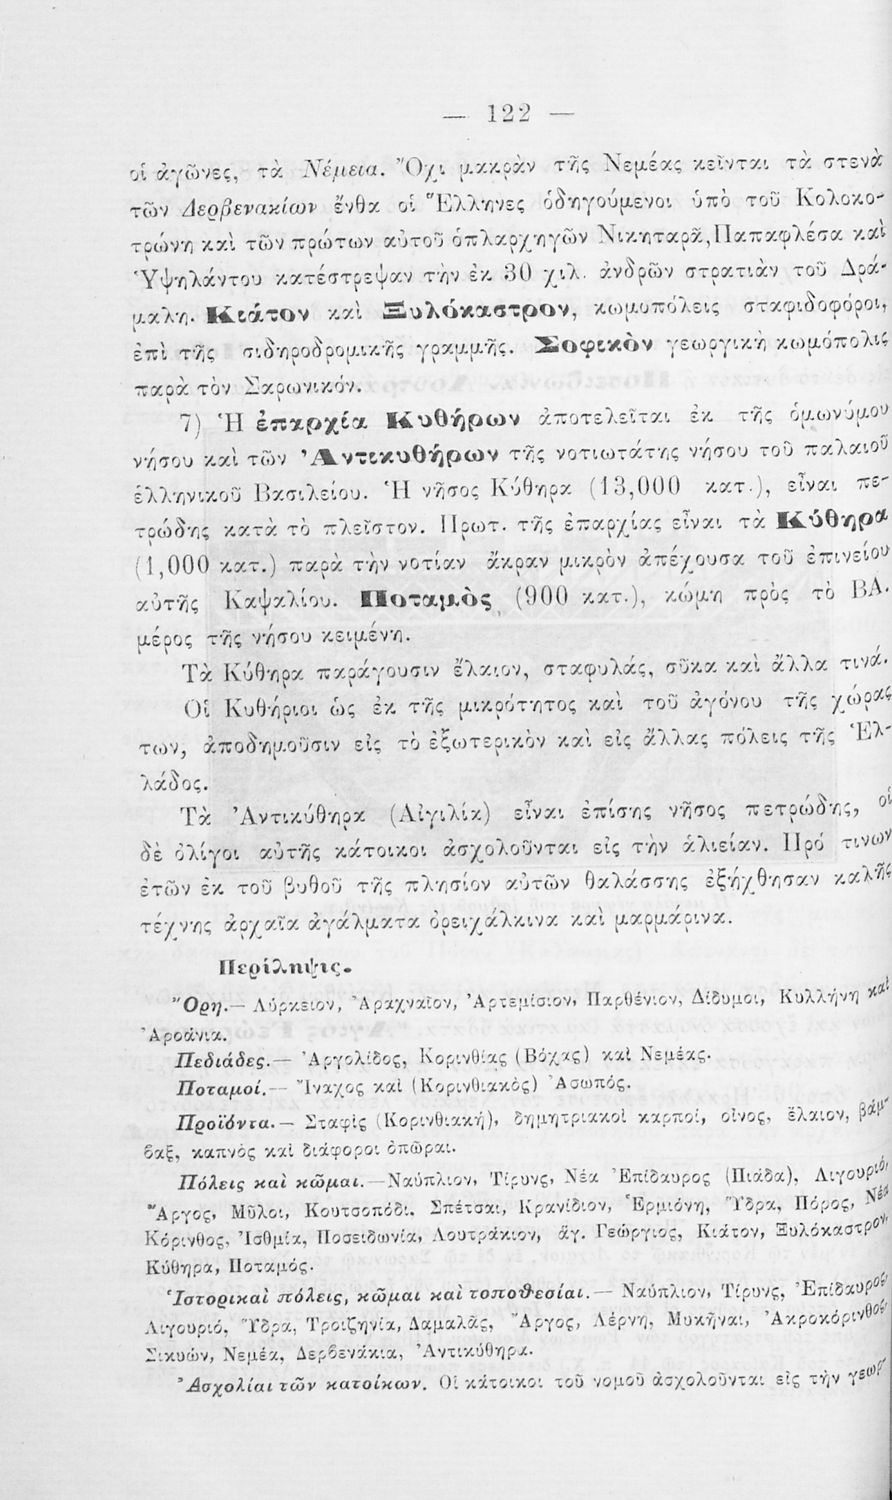 — 122 —
οἱ ἀγῶνες, τὰ Νέμεια. Ὄχι μακρὰν τῆς Νεμέας κεῖνται τὰ στενὰ
τῶν Δερβενακίων ἔνθα οἱ Ἕλληνες ὁδηγούμενοι ὑπὸ τοῦ Κολοκο-
τρώνη καὶ τῶν πρώτων αὐτοῦ ὁπλαρχηγῶν Νικηταρᾶ, Παπαφλέσα καὶ
Ὑψηλάντου κατέστρεψαν τὴν ἐκ 30 χιλ. ἀνδρῶν στρατιὰν τοῦ Δρά-
μαλη. Κιάτον καὶ Ξυλόκαστρον, κωμοπόλεις σταφιδοφόροι,
ἐπὶ τῆς σιδηροδρομικῆς γραμμῆς. Σοφικὸν γεωργικὴ κωμόπολις
παρὰ τὸν Σαρωνικόν.
7) Ἡ ἐπαρχία Κυθήρων ἀποτελεῖται ἐκ τῆς ὁμωνύμου
νήσου καὶ τῶν Ἀντικυθήρων τῆς νοτιωτάτης νήσου τοῦ παλαιοῦ
ἑλληνικοῦ Βασιλείου. Ἡ νῆσος Κύθηρα (13,000 κατ.), εἶναι πε-
τρώδης κατὰ τὸ πλεῖστον. Πρωτ. τῆς ἐπαρχίας εἶναι τὰ Κύθηρα
(1,000 κατ.) παρὰ τὴν νοτίαν ἄκραν μικρὸν ἀπέχουσα τοῦ ἐπινείου
αὐτῆς Καψαλίου. Ποταμὸς (900 κατ.), κώμη πρὸς τὸ ΒΑ.
μέρος τῆς νήσου κειμένη.
Τὰ Κύθηρα παράγουσιν ἔλαιον, σταφυλάς, σῦκα καὶ ἄλλα τινά.
Οἱ Κυθήριοι ὡς ἐκ τῆς μικρότητος καὶ τοῦ ἀγόνου τῆς χώρας
των, ἀποδημοῦσιν εἰς τὸ ἐξωτερικὸν καὶ εἰς ἄλλας πόλεις τῆς Ἑλ-
λάδος.
Τὰ Ἀντικύθηρα (Αἰγιλία) εἶναι ἐπίσης νῆσος πετρώδης, οἱ
δὲ ὀλίγοι αὐτῆς κάτοικοι ἀσχολοῦνται εἰς τὴν ἁλιείαν. Πρό τινων
ἐτῶν ἐκ τοῦ βυθοῦ τῆς πλησίον αὐτῶν θαλάσσης ἐξήχθησαν καλῆς
τέχνης ἀρχαῖα ἀγάλματα ὀρειχάλκινα καὶ μαρμάρινα.
Περίληψις.
Ὄρη.— Λύρκειον, Ἀραχναῖον, Ἀρτεμίσιον, Παρθένιον, Δίδυμοι, Κυλλήνη καὶ
Ἀροάνια.
Πεδιάδες.— Ἀργολίδος, Κορινθίας (Βόχας) καὶ Νεμέας.
Ποταμοί.— Ἴναχος καὶ (Κορινθιακὸς) Ἀσωπός.
Προϊόντα.— Σταφὶς (Κορινθιακή), δημητριακοὶ καρποί, οἶνος, ἔλαιον, βάμ-
βαξ, καπνὸς καὶ διάφοροι ὀπῶραι.
Πόλεις καὶ κῶμαι.—Ναύπλιον, Τίρυνς, Νέα Ἐπίδαυρος (Πιάδα), Λιγουριό,
Ἄργος, Μῦλοι, Κουτσοπόδι, Σπέτσαι, Κρανίδιον, Ἑρμιόνη, Ὕδρα, Πόρος, Νέα
Κόρινθος, Ἰσθμία, Ποσειδωνία, Λουτράκιον, ἅγ. Γεώργιος, Κιάτον, Ξυλόκαστρον,
Κύθηρα, Ποταμός.
Ἱστορικαὶ πόλεις, κῶμαι καὶ τοποθεσίαι.— Ναύπλιον, Τίρυνς, Ἐπίδαυρος,
Λιγουριό, Ὕδρα, Τροιζηνία, Δαμαλᾶς, Ἄργος, Λέρνη, Μυκῆναι, Ἀκροκόρινθος,
Σικυών, Νεμέα, Δερβενάκια, Ἀντικύθηρα.
Ἀσχολίαι τῶν κατοίκων. Οἱ κάτοικοι τοῦ νομοῦ ἀσχολοῦνται εἰς τὴν γεωρ-